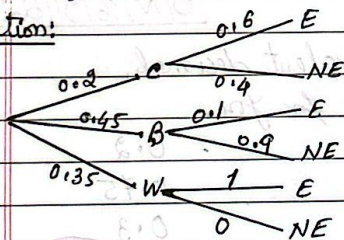 tion:
0.6 E
0.2 C
0.4 NE
0.45 B 0.1 E
0.9 NE
0.35 W 1 E
0 NE